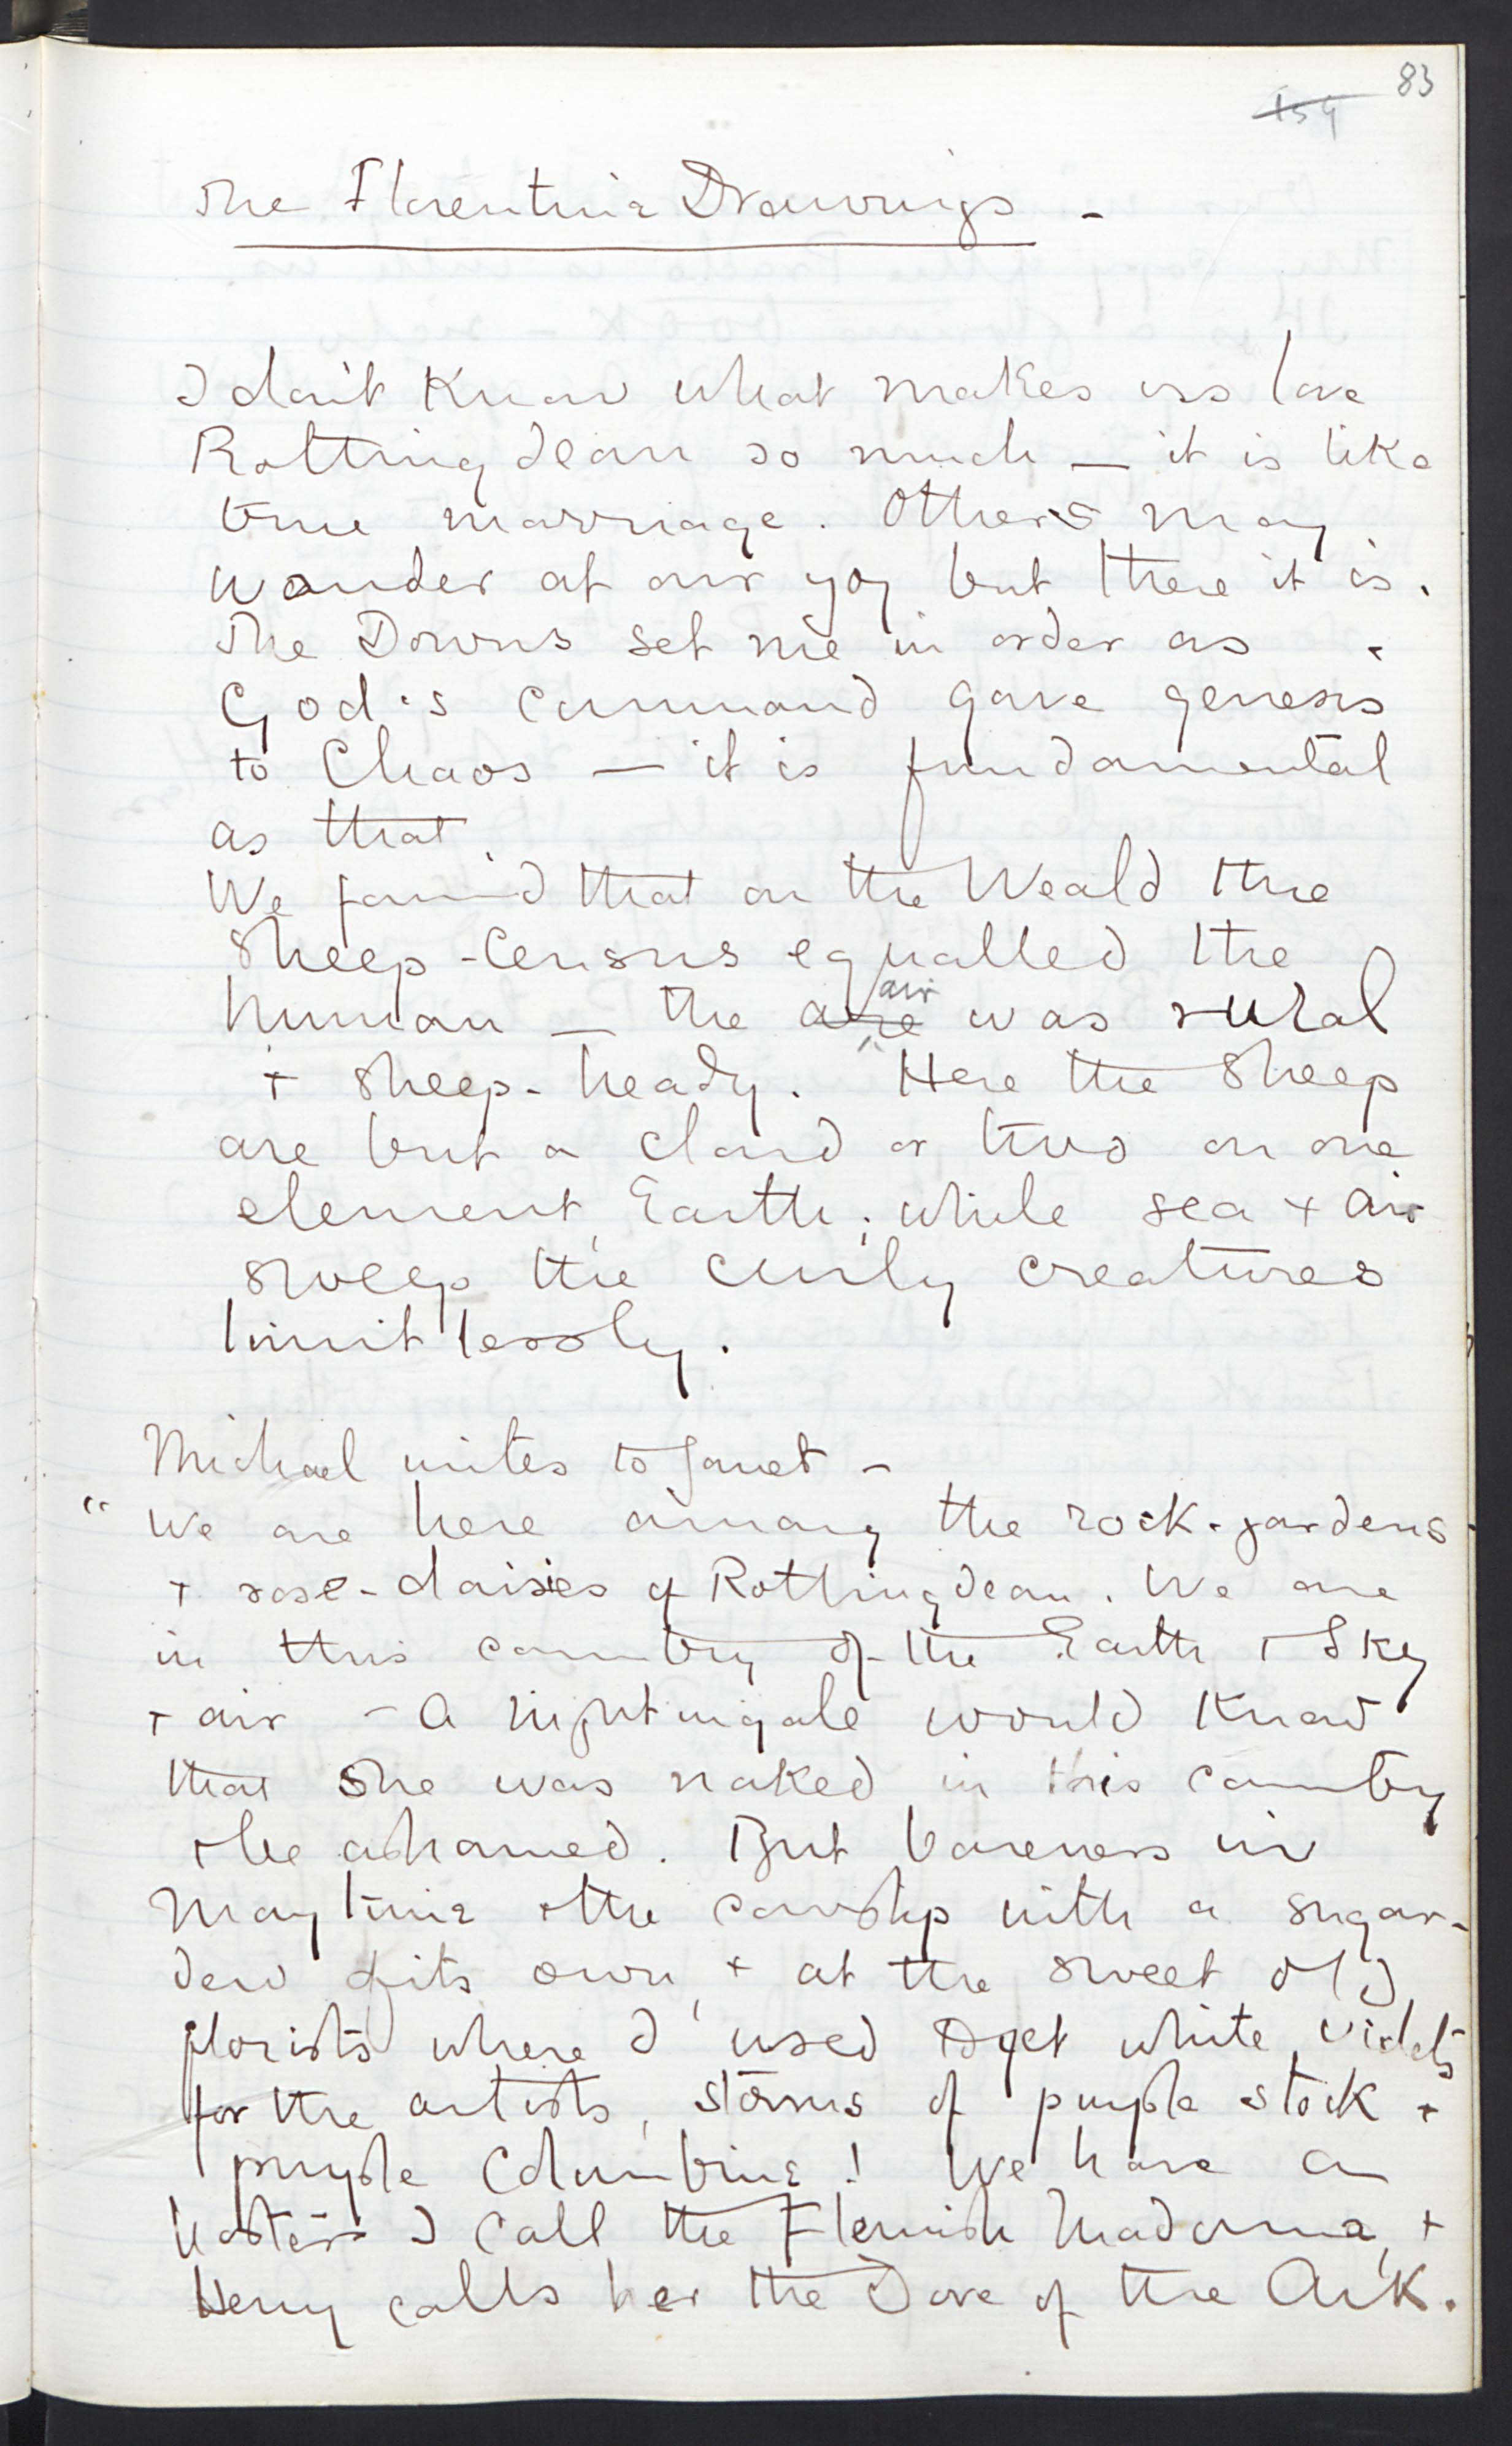 83
154
The Florentine Drawings -
I don't know what makes us love
Rottingdean so much — it is like
true marriage. Others may
wonder at our joy but there it is.
The Downs set me in order as
God's command gave genesis
to Chaos — it is fundamental
as that.
We found that on the Weald the
Sheep-Census equalled the
human — the are air was rural
+ sheep-heady. Here the Sheep
are but a cloud or two on one
element, Earth; while sea + air
sweep the curly creatures
limitlessly.
Michael writes to Janet -
"We are here among the rock-gardens
+ rose-daisies of Rottingdean. We are
in this country of the Earth + Sky
+ air - a nightingale would know
that she was naked in this country
+ be ashamed. But bareness in
Maytime + the cowslip with a sugar-
dew of its own, + at the sweet old
florists where I used to get white violets
for the artists, storms of purple stock +
purple Columbine! We have a
hostess I call the Flemish Madonna, +
Henry calls her the Dove of the Ark.